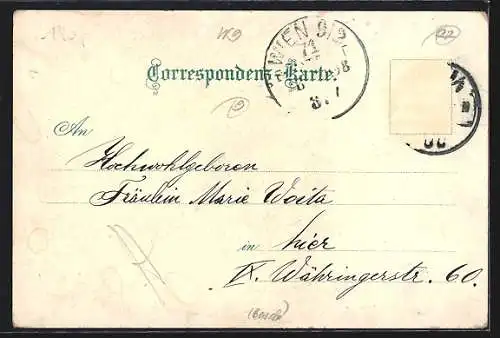 22
WIEN 9/3
Correspondenz-Karte.
An
Hochwohlgeboren
Fräulein Marie Woita
in hier
IX. Währingerstr. 60.